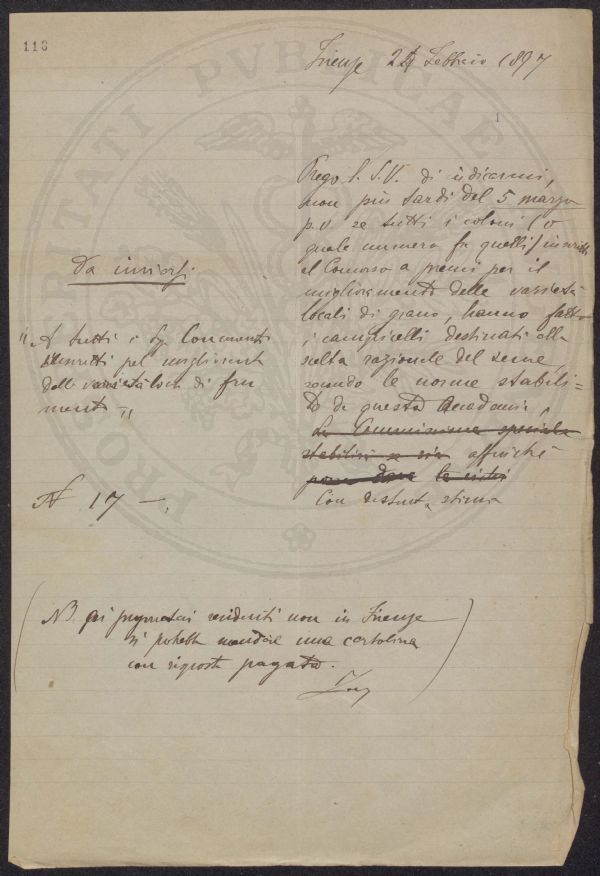 118
Firenze 24 Febbraio 1897
1
Prego l. S. V. di indicarmi,
non più tardi del 5 marzo
p.v se tutti i coloni (o
quale numero fra quelli) inscritti
al Concorso a premi per il
miglioramento delle varietà
locali di grano, hanno fatto
i campicelli destinati alla
scelta razionale del seme,
secondo le norme stabili=
te da questa Accademia,
La Commissione speciale
stabilisi affinché
Con distinta stima
Da inviarsi
"A tutti i Sig. Concorrenti
inscritti pel migliorament
delle varietà loc. di fru
mento"
N 17 —
(NB pei proprietari residenti non in Firenze
si potrebbe mandare una cartolina
con risposta pagata.
PROSPERITATI PUBLICAE